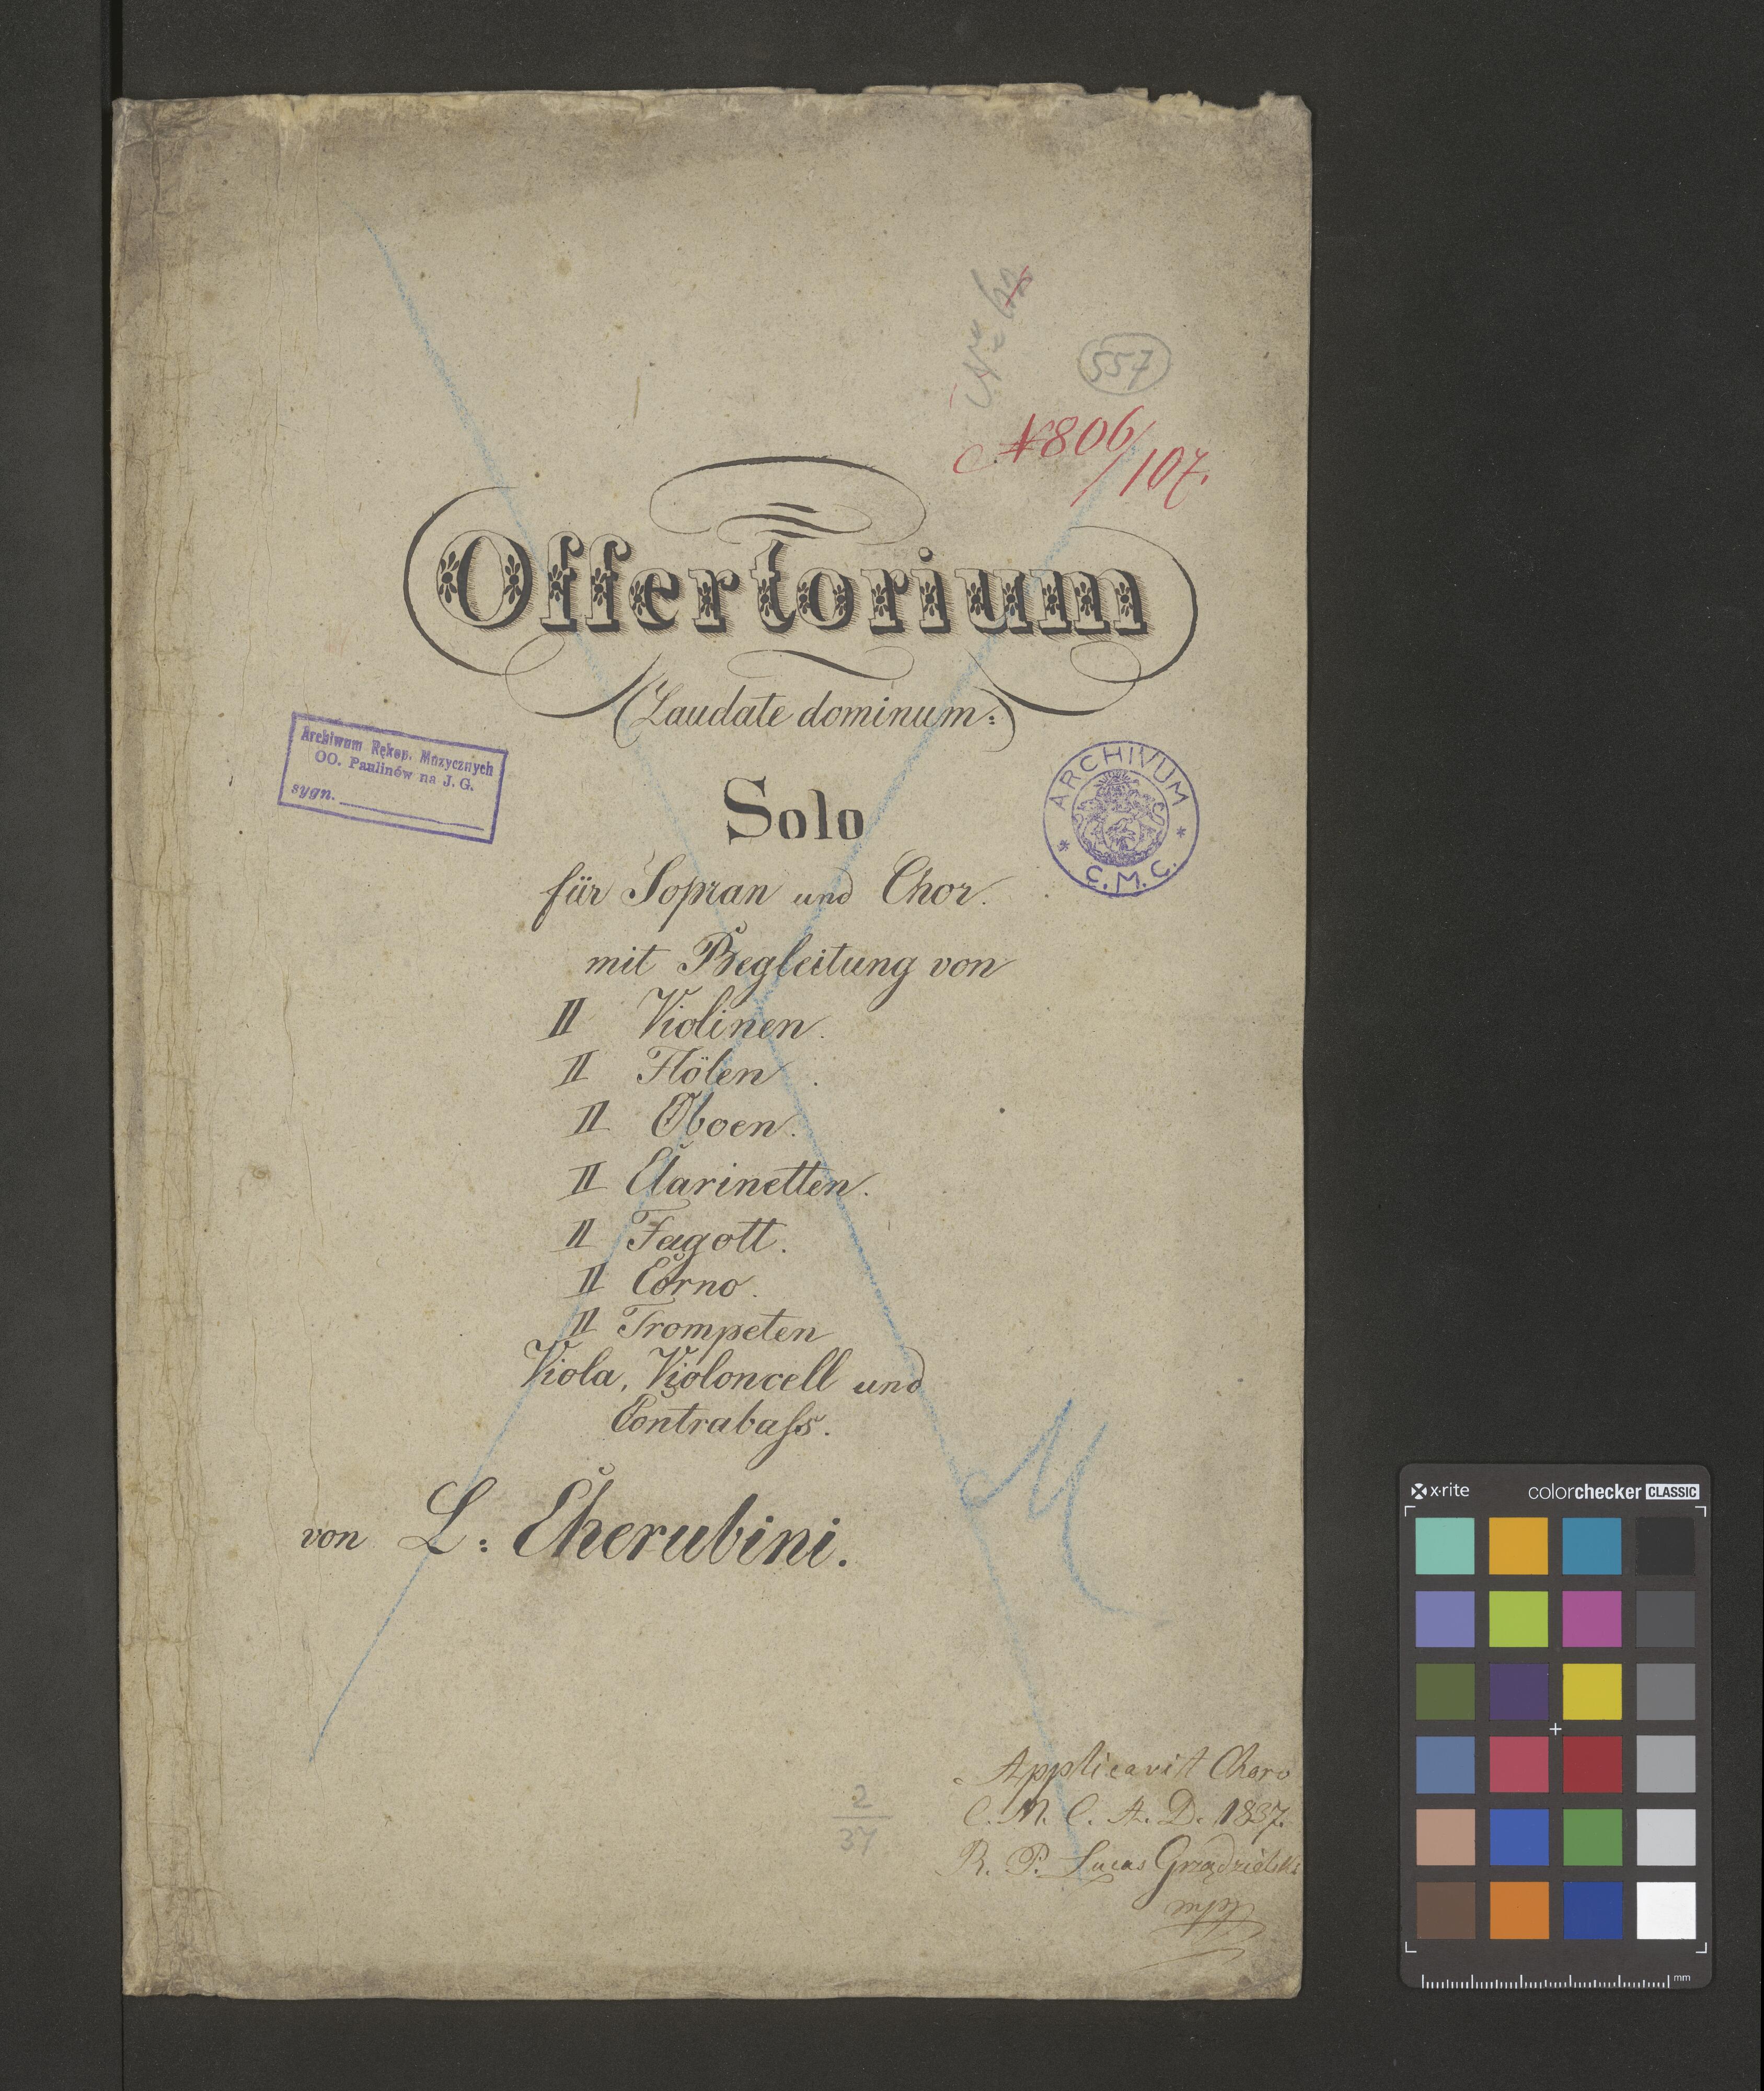 557
N 806/107.
Offertorium
(Laudate dominum:)
Archiwum Rękop. Muzycznych
OO. Paulinów na J. G.
sygn.
ARCHIVUM
* C. M. C. *
Solo
für Sopran und Chor.
mit Begleitung von
II Violinen.
II Flöten.
II Oboen.
II Clarinetten.
II Fagott.
II Corno.
II Trompeten
Viola, Violoncell und
Contrabaſs.
von L: Cherubini.
M
2
37
Applicavit Choro
C. M. C. A. D. 1837.
R. P. Lucas Grządzielski
mpp
x·rite colorchecker CLASSIC
mm